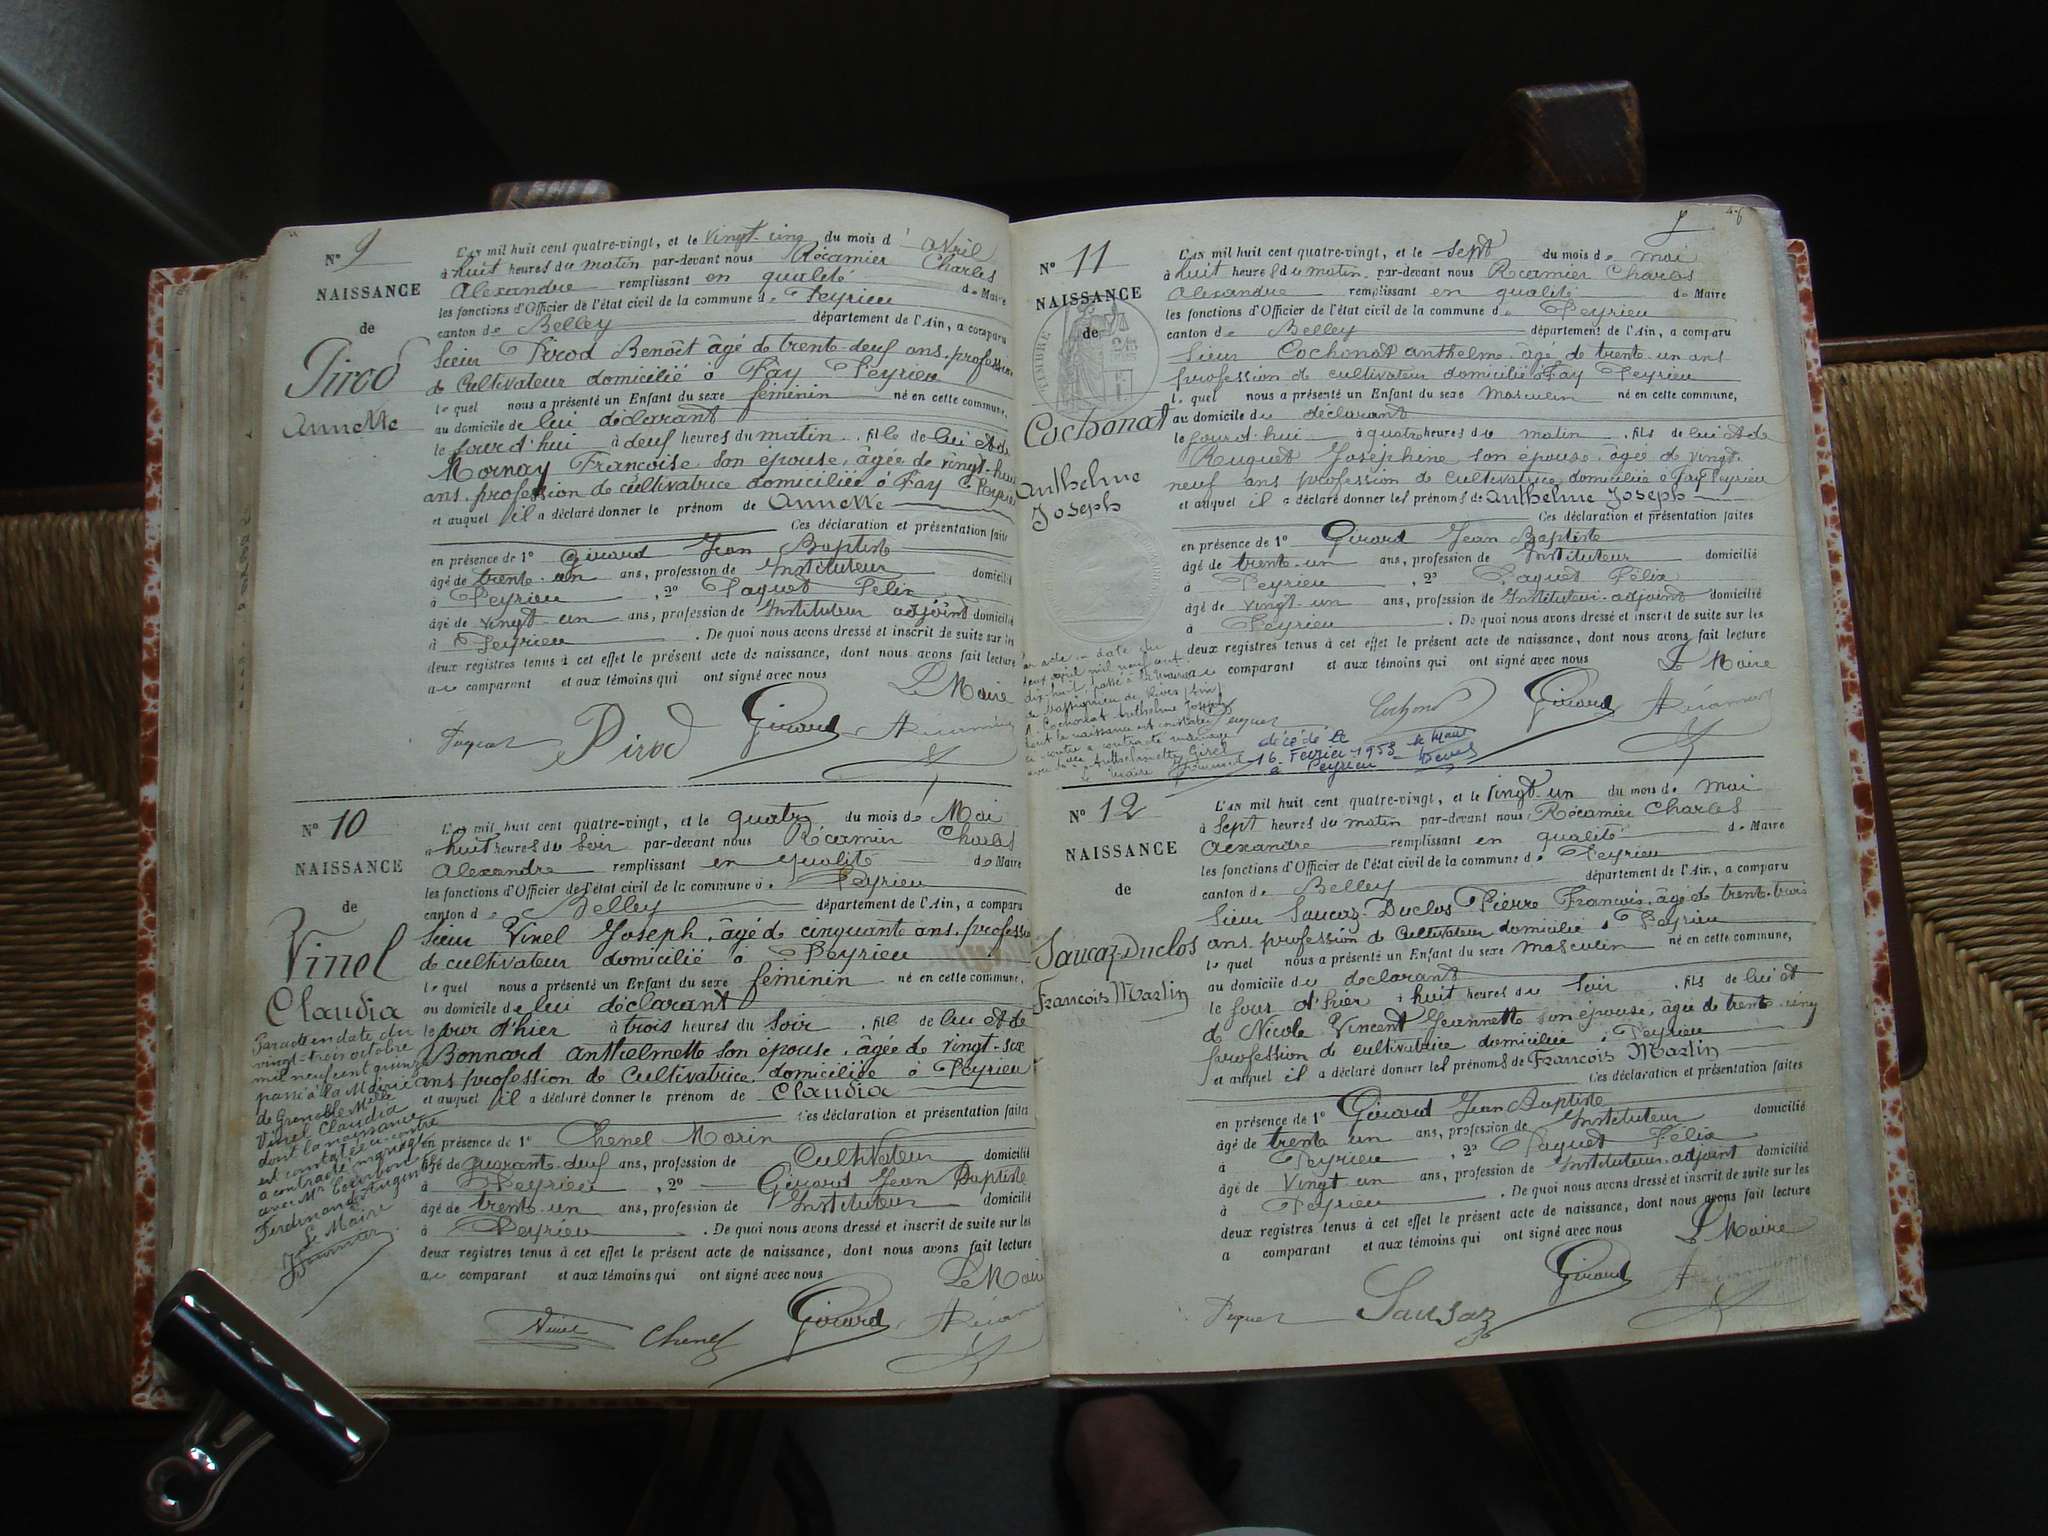 N° 9
NAISSANCE
de
Pirod
Annette
L'AN mil huit cent quatre-vingt, et le vingt-cinq du mois d'avril
à huit heures du matin par-devant nous Récamier Charles
Alexandre remplissant en qualité de Maire
les fonctions d'Officier de l'état civil de la commune de Peyrieu
canton de Belley département de l'Ain, a comparu
Sieur Pirod Benoît âgé de trente-deuf ans, profession
de Cultivateur domicilié à Fay Peyrieu
lequel nous a présenté un Enfant du sexe féminin né en cette commune,
au domicile de lui déclarant
le jour d'hui à deuf heures du matin, fille de lui et de
Mornay Françoise son épouse, âgée de vingt-huit
ans, profession de cultivatrice domiciliée à Fay Peyrieu
et auquel il a déclaré donner le prénom de Annette
Ces déclaration et présentation faites
en présence de 1° Girard Jean Baptiste
âgé de trente-un ans, profession de Instituteur domicilié
à Peyrieu, 2° Paquet Félix
âgé de vingt-un ans, profession de Instituteur adjoint domicilié
à Peyrieu. De quoi nous avons dressé et inscrit de suite sur les
deux registres tenus à cet effet le présent acte de naissance, dont nous avons fait lecture
au comparant et aux témoins qui ont signé avec nous Le Maire
Paquet Pirod Girard Récamier
N° 10
NAISSANCE
de
Vinel
Claudia
Par acte en date du
vingt-trois octobre
mil neuf cent quinze
passé à la Mairie
de Grenoble Melle
Vinel Claudia
dont la naissance
est constatée ci-contre
a contracté mariage
avec Mr
Ferdinand
Le Maire
L'AN mil huit cent quatre-vingt, et le quatre du mois de Mai
à huit heures du soir par-devant nous Récamier Charles
Alexandre remplissant en qualité de Maire
les fonctions d'Officier de l'état civil de la commune de Peyrieu
canton de Belley département de l'Ain, a comparu
Sieur Vinel Joseph, âgé de cinquante ans, profession
de cultivateur domicilié à Peyrieu
lequel nous a présenté un Enfant du sexe féminin né en cette commune,
au domicile de lui déclarant
le jour d'hier à trois heures du soir, fille de lui et de
Bonnard Anthelmette son épouse, âgée de vingt-six
ans profession de Cultivatrice, domiciliée à Peyrieu
et auquel il a déclaré donner le prénom de Claudia
Ces déclaration et présentation faites
en présence de 1° Chenel Marin
âgé de quarante-deuf ans, profession de Cultivateur domicilié
à Peyrieu, 2° Girard Jean Baptiste
âgé de trente-un ans, profession de Instituteur domicilié
à Peyrieu. De quoi nous avons dressé et inscrit de suite sur les
deux registres tenus à cet effet le présent acte de naissance, dont nous avons fait lecture
au comparant et aux témoins qui ont signé avec nous Le Maire
Vinel Chenel Girard Récamier
N° 11
NAISSANCE
de
TIMBRE
Cochonat
Anthelme
Joseph
Par acte en date du
deux avril mil neuf cent
dix-huit, passé à la Mairie
de Massignieu de Rives (Ain)
Mr Cochonat Anthelme Joseph
dont la naissance est constatée
ci-contre a contracté mariage
avec Anthelmette Girel
Le Maire
L'AN mil huit cent quatre-vingt, et le sept du mois de mai
à huit heures du matin par-devant nous Récamier Charles
Alexandre remplissant en qualité de Maire
les fonctions d'Officier de l'état civil de la commune de Peyrieu
canton de Belley département de l'Ain, a comparu
Sieur Cochonat Anthelme âgé de trente-un ans
profession de cultivateur domicilié à Fay Peyrieu
lequel nous a présenté un Enfant du sexe masculin né en cette commune,
au domicile du déclarant
le jour d'hui à quatre heures du matin, fils de lui et de
Ruguet Joséphine son épouse, âgée de vingt-
neuf ans profession de Cultivatrice domiciliée à Fay Peyrieu
et auquel il a déclaré donner les prénoms de Anthelme Joseph
Ces déclaration et présentation faites
en présence de 1° Girard Jean Baptiste
âgé de trente-un ans, profession de Instituteur domicilié
à Peyrieu, 2° Paquet Félix
âgé de vingt-un ans, profession de Instituteur-adjoint domicilié
à Peyrieu. De quoi nous avons dressé et inscrit de suite sur les
deux registres tenus à cet effet le présent acte de naissance, dont nous avons fait lecture
au comparant et aux témoins qui ont signé avec nous Le Maire
Paquet Cochonat Girard Récamier
décédé le
16 Février 1953 le Maire
à Peyrieu
N° 12
NAISSANCE
de
Saucaz-Duclos
François Martin
L'AN mil huit cent quatre-vingt, et le vingt-un du mois de Mai
à sept heures du matin par-devant nous Récamier Charles
Alexandre remplissant en qualité de Maire
les fonctions d'Officier de l'état civil de la commune de Peyrieu
canton de Belley département de l'Ain, a comparu
Sieur Saucaz-Duclos Pierre François, âgé de trente-trois
ans, profession de Cultivateur domicilié à Peyrieu
lequel nous a présenté un Enfant du sexe masculin né en cette commune,
au domicile du déclarant
le jour d'hier à huit heures du soir, fils de lui et
de Nicole Vincent Jeannette son épouse, âgée de trente-cinq
profession de cultivatrice domiciliée à Peyrieu
et auquel il a déclaré donner les prénoms de François Martin
Ces déclaration et présentation faites
en présence de 1° Girard Jean Baptiste
âgé de trente un ans, profession de Instituteur domicilié
à Peyrieu, 2° Paquet Félix
âgé de Vingt-un ans, profession de Instituteur-adjoint domicilié
à Peyrieu. De quoi nous avons dressé et inscrit de suite sur les
deux registres tenus à cet effet le présent acte de naissance, dont nous avons fait lecture
a comparant et aux témoins qui ont signé avec nous Le Maire
Paquet Sausaz Girard Récamier